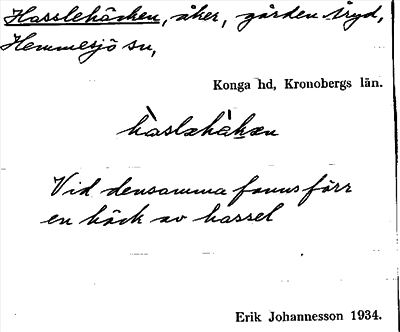 Hasslehäcken, åker, gården Tryd,
Hemmesjö sn,
Konga hd, Kronobergs län.
hàslæhákæn
Vid densamma fanns förr
en häck av hassel
Erik Johannesson 1934.